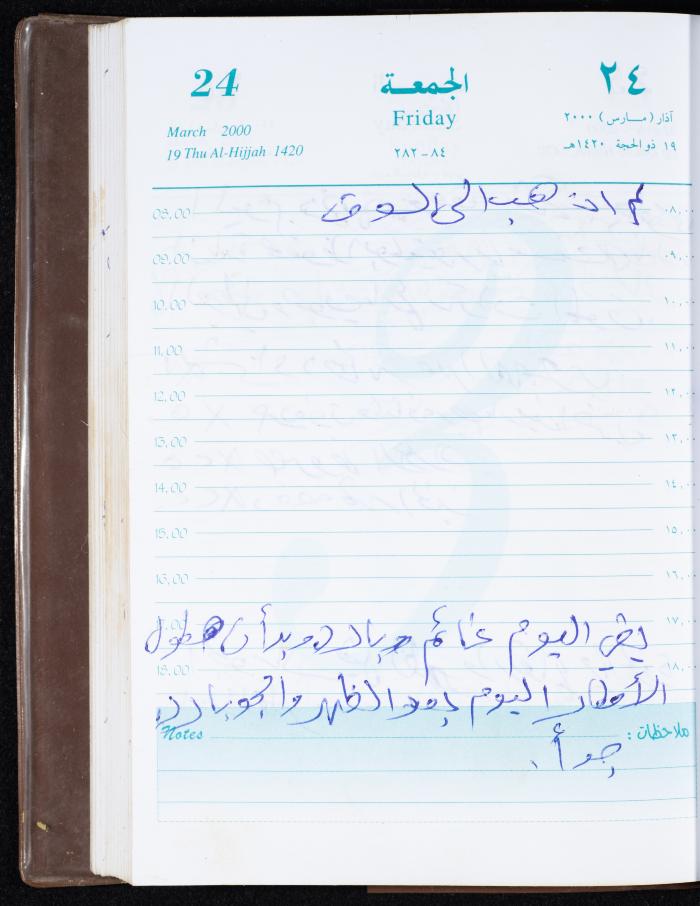 24 الجمعة ٢٤
Friday
March 2000 آذار (مارس) ٢٠٠٠
19 Thu Al-Hijjah 1420 ٢٨٢-٨٤ ١٩ ذو الحجة ١٤٢٠هـ
لم اذهب الى السوق
08.00 ٠٨.٠٠
09.00 ٠٩.٠٠
10.00 ١٠.٠٠
11.00 ١١.٠٠
12.00 ١٢.٠٠
13.00 ١٣.٠٠
14.00 ١٤.٠٠
15.00 ١٥.٠٠
16.00 ١٦.٠٠
بقي اليوم غائم وبارد وبدأت هطول
17.00 ١٧.٠٠
18.00 ١٨.٠٠
الأمطار اليوم بعد الظهر والجو بارد
Notes ملاحظات :
جداً.